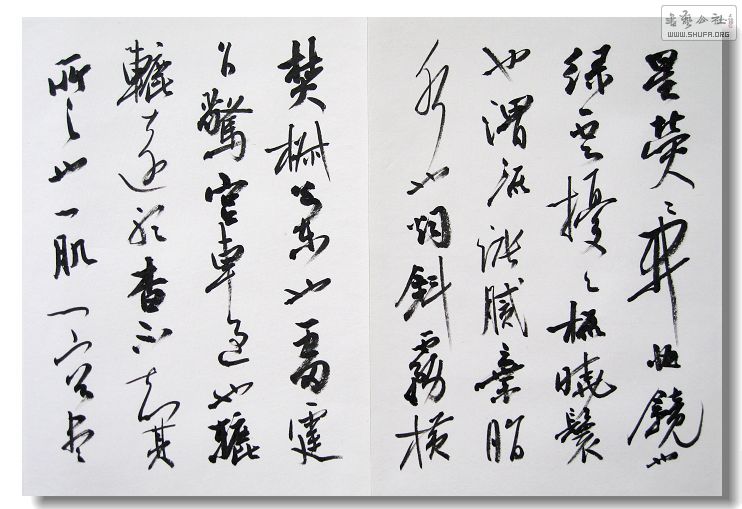 書藝公社
WWW.SHUFA.ORG
星熒々開妝鏡也
緑雲擾々梳曉鬟
也渭流漲膩棄脂
水也烟斜霧横
焚椒蘭也雷霆
乍驚宮車過也轆
轆遠聽杳不知其
所之也一肌一容盡